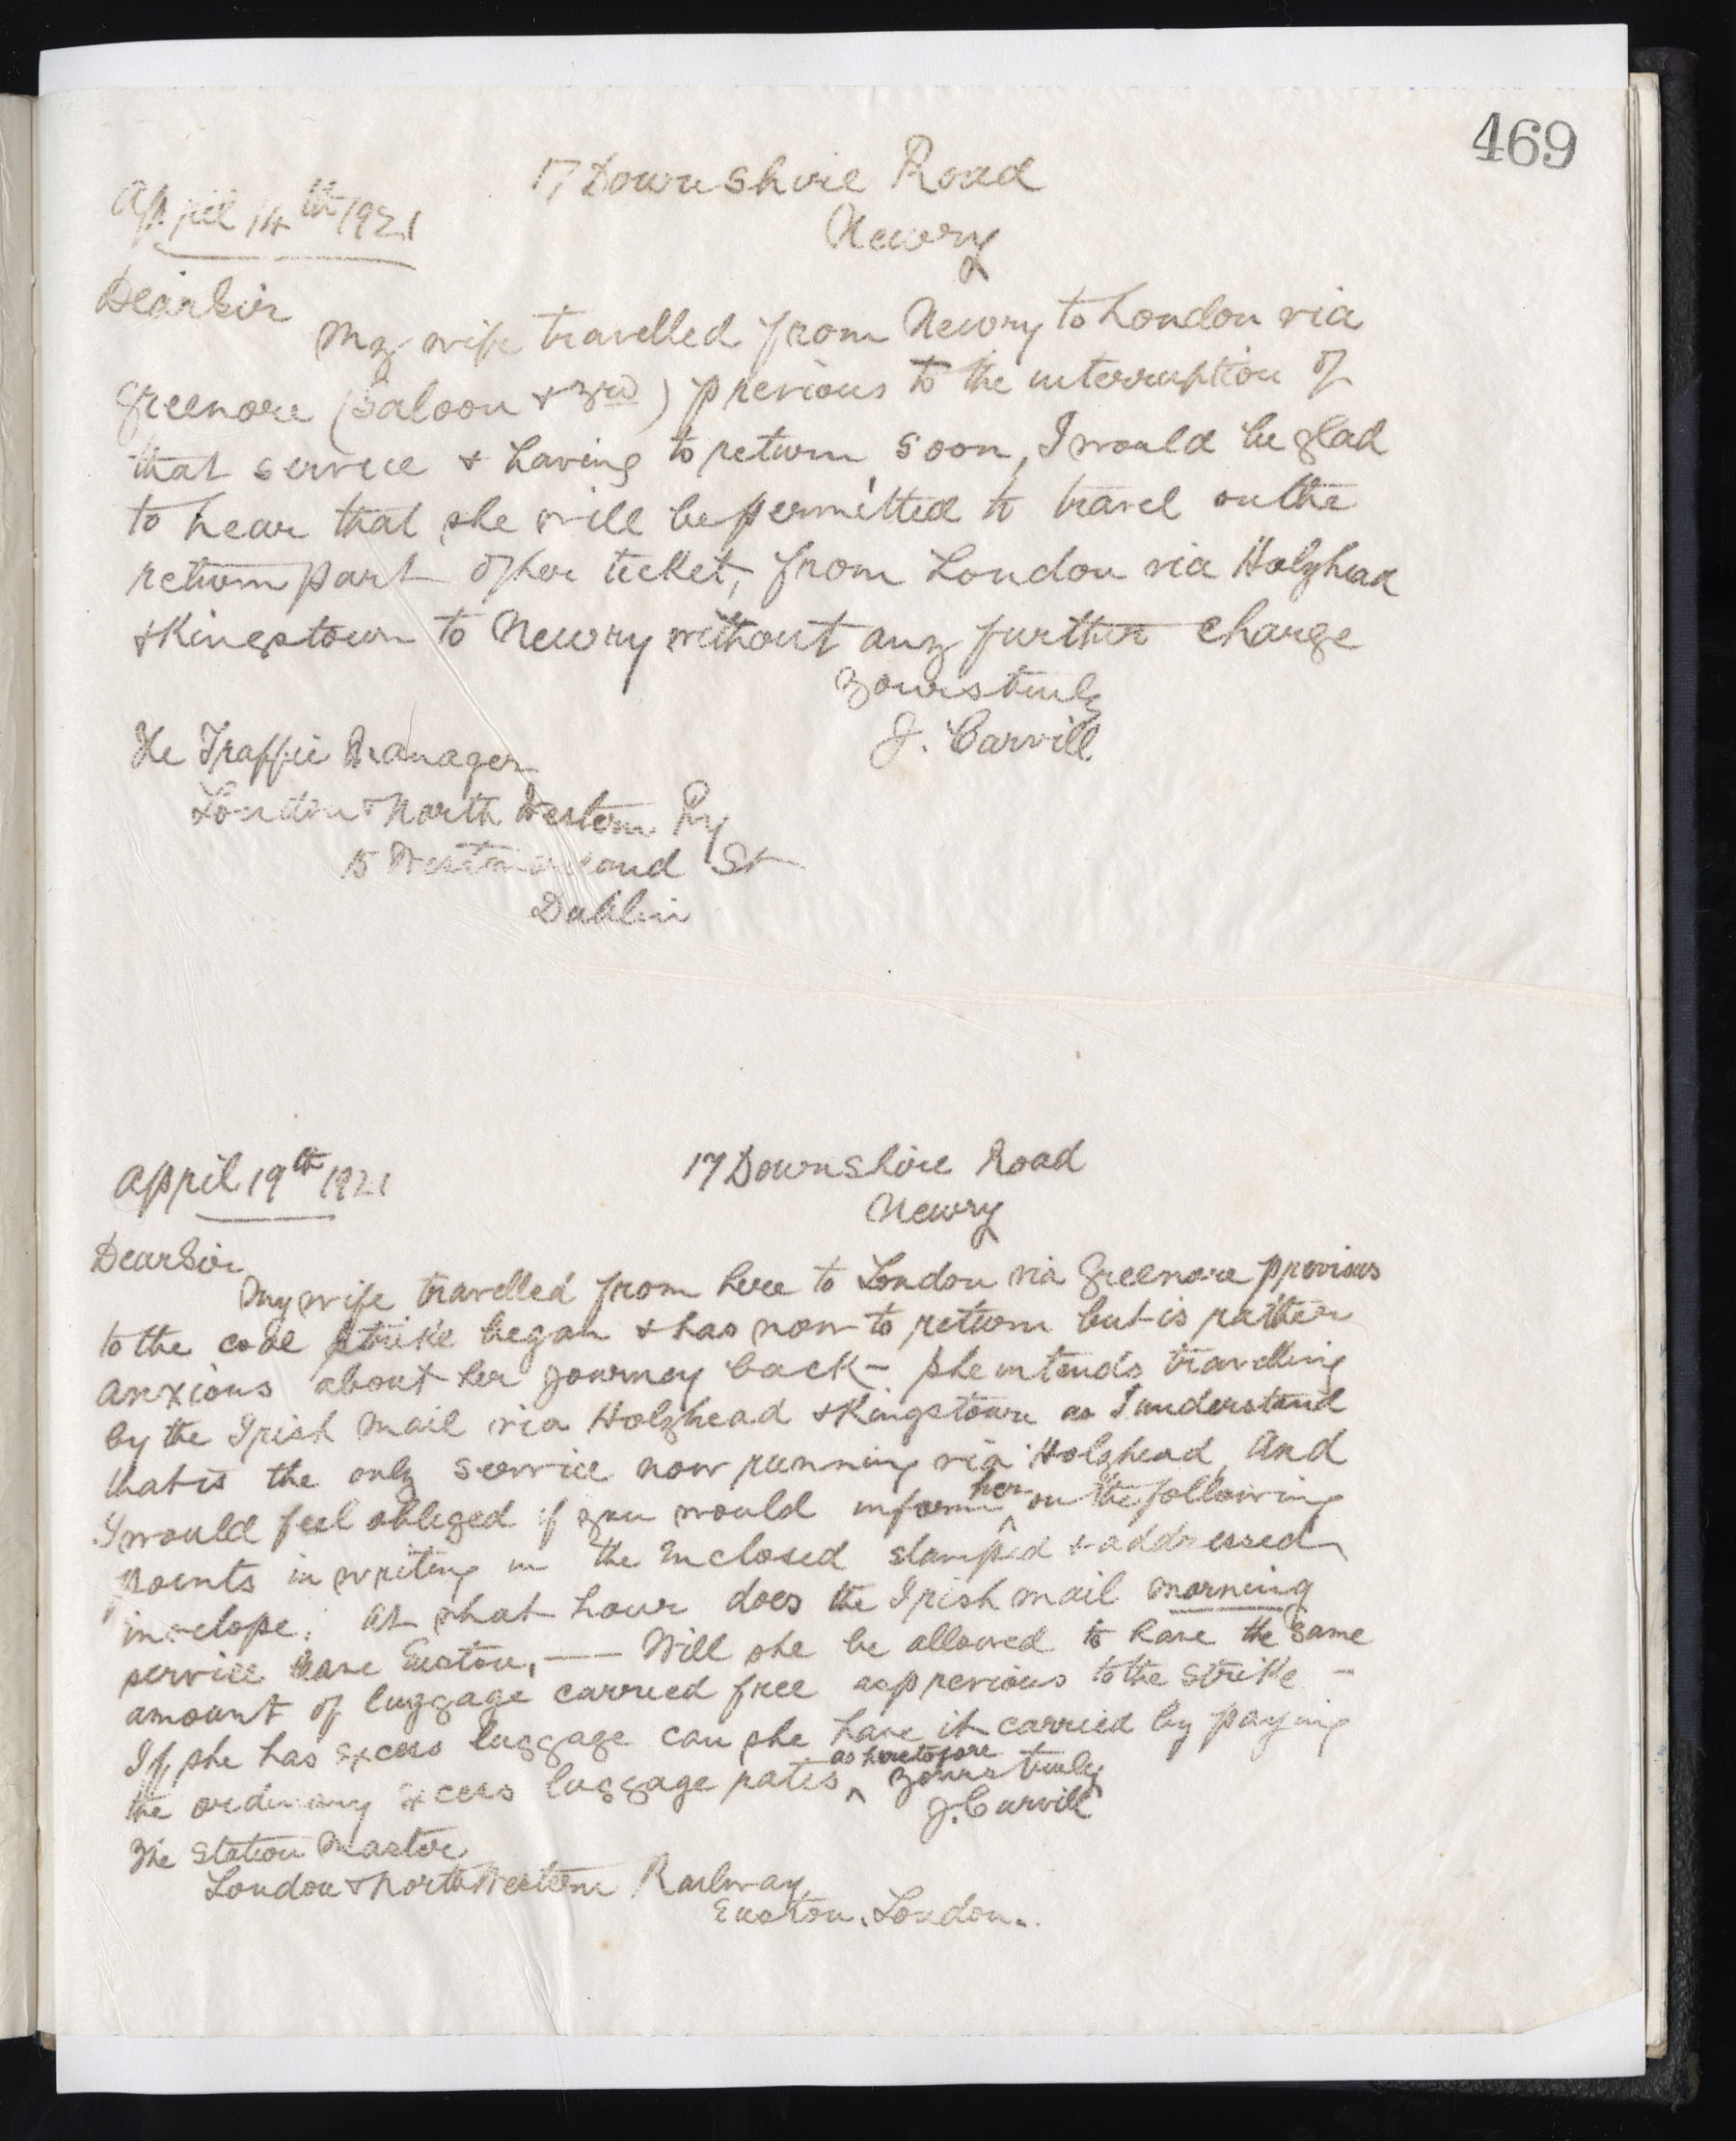 469
17 Downshire Road
April 14th 1921
Newry
Dear Sir
My wife travelled from Newry to London via
Greenore (Saloon & 3rd) previous to the interruption of
that service & having to return soon, I would be glad
to hear that she will be permitted to travel on the
return part of her ticket, from London via Holyhead
& Kingstown to Newry without any further charge
Yours truly
J. Carvill
The Traffic Manager
London & North Western Ry
15 Westmoreland St
Dublin
April 19th 1921
17 Downshire Road
Newry
Dear Sir
My wife travelled from here to London via Greenore previous
to the coal strike began & has now to return but is rather
anxious about her journey back - she intends travelling
by the Irish Mail via Holyhead & Kingstown as I understand
that is the only service now running via Holyhead, and
I would feel obliged if you would inform her on the following
points in writing in the enclosed stamped & addressed
invelope: At what hour does the Irish mail morning
service leave Euston, —— Will she be allowed to have the same
amount of luggage carried free as previous to the strike -
If she has excess luggage can she have it carried by paying
the ordinary excess luggage rates as heretofore
Yours truly
J. Carvill
The Station Master
London & North Western Railway
Euston. London.